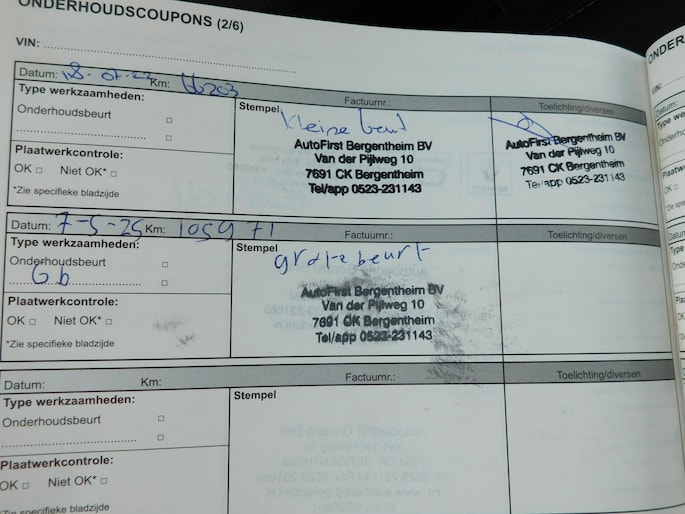 ONDERHOUDSCOUPONS (2/6)
VIN:
Datum: Km:
Factuurnr.:
Toelichting/diversen
Type werkzaamheden:
Onderhoudsbeurt
Plaatwerkcontrole:
OK □ Niet OK* □
*Zie specifieke bladzijde
Stempel
kleine beurt
AutoFirst Bergentheim BV
Van der Pijlweg 10
7691 CK Bergentheim
Tel/app 0523-231143
AutoFirst Bergentheim BV
Van der Pijlweg 10
7691 CK Bergentheim
Tel/app 0523-231143
Datum: 7-5-25 Km: 105971
Factuurnr.:
Toelichting/diversen
Type werkzaamheden:
Onderhoudsbeurt
Gb
Plaatwerkcontrole:
OK □ Niet OK* □
*Zie specifieke bladzijde
Stempel
grote beurt
AutoFirst Bergentheim BV
Van der Pijlweg 10
7691 CK Bergentheim
Tel/app 0523-231143
Datum: Km:
Factuurnr.:
Toelichting/diversen
Type werkzaamheden:
Onderhoudsbeurt
Plaatwerkcontrole:
OK □ Niet OK* □
*Zie specifieke bladzijde
Stempel